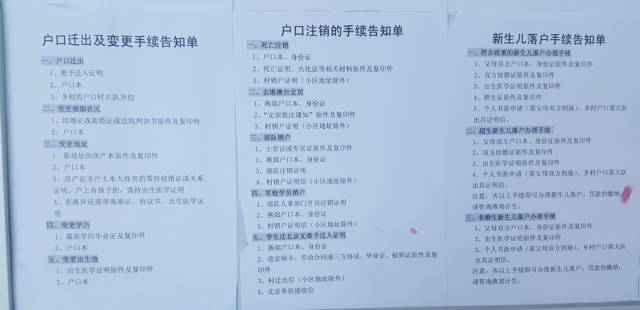 户口迁出及变更手续告知单
一、户口迁出
1、准予迁入证明
2、户口本
3、乡村的户口村大队开信
二、变更婚姻状况
1、结婚证或离婚证或法院判决书原件及复印件
2、户口本
三、变更地址
1、新地址的房产本原件及复印件
2、户口本
3、房产证非户主本人姓名的需持结婚证或关系
证明，户上有孩子的，需持出生医学证明
4、若离异还需带离婚证、协议书、出生医学证
明
四、变更学历
1、最高学历毕业证及复印件
2、户口本
五、变更出生地
1、出生医学证明原件及复印件
2、户口本
户口注销的手续告知单
一、死亡注销
1、户口本、身份证
2、死亡证明、火化证等相关材料原件及复印件
3、村销户证明（小区地址除外）
二、去港澳台定居
1、燕郊户口本、身份证
2、“定居批注通知”原件及复印件
3、村销户证明（小区地址除外）
三、部队销户
1、士官证或军官证原件及复印件
2、燕郊户口本、身份证
3、部队注销证明
4、村销户证明信（小区地址除外）
四、军校学员销户
1、部队人事部门开具注销证明
2、燕郊户口本、身份证
3、村销户证明信（小区地址除外）
五、学生迁北京无准予迁入证明
1、燕郊户口本、身份证
2、进京绿卡、劳动合同或三方协议、毕业证、报到证原件及复
印件
3、村迁出信（小区地址除外）
4、北京单位接收信
新生儿落户手续告知单
一、符合政策的新生儿落户办理手续
1、父母双方户口本、身份证原件及复印件
2、双方结婚证原件及复印件
3、出生医学证明原件及复印件
4、准生证原件及复印件
5、个人书面申请（需父母双方到场），乡村户口需大队
出具证明信。
二、超生新生儿落户办理手续
1、父母双方户口本、身份证原件及复印件
2、双方结婚证原件及复印件
3、出生医学证明原件及复印件
4、个人书面申请（需父母双方到场），乡村户口需大队
出具证明信。
注意：齐以上手续即可办理新生儿落户，罚款的缴纳，
请咨询燕郊计生。
三、非婚生新生儿落户办理手续
1、父母双方户口本、身份证原件及复印件
2、出生医学证明原件及复印件
3、个人书面申请（需父母双方到场），乡村户口需大队
出具证明信。
注意：齐以上手续即可办理新生儿落户，罚款的缴纳，
请咨询燕郊计生。